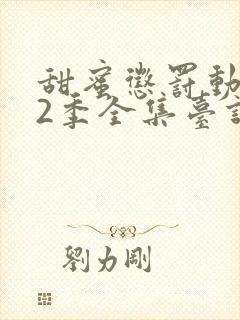 甜蜜懲罰動
2季全集臺
劉力剛